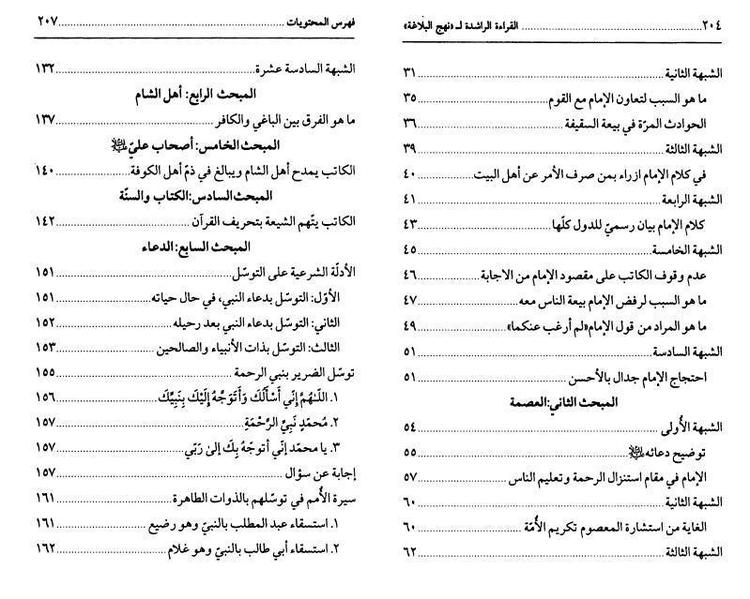 ٢٠٤ .......... القراءة الراشدة لـ «نهج البلاغة»
الشبهة الثانية .......... ٣١
ما هو السبب لتعاون الإمام مع القوم .......... ٣٥
الحوادث المرّة في بيعة السقيفة .......... ٣٦
الشبهة الثالثة .......... ٣٩
في كلام الإمام ازراء بمن صرف الأمر عن أهل البيت .......... ٤٠
الشبهة الرابعة .......... ٤١
كلام الإمام بيان رسميّ للدول كلّها .......... ٤٣
الشبهة الخامسة .......... ٤٥
عدم وقوف الكاتب على مقصود الإمام من الاجابة .......... ٤٦
ما هو السبب لرفض الإمام بيعة الناس معه .......... ٤٧
ما هو المراد من قول الإمام«لم أرغب عنكما» .......... ٤٩
الشبهة السادسة .......... ٥١
احتجاج الإمام جدال بالأحسن .......... ٥١
المبحث الثاني:العصمة
الشبهة الأُولى .......... ٥٤
توضيح دعائه .......... ٥٥
الإمام في مقام استنزال الرحمة وتعليم الناس .......... ٥٧
الشبهة الثانية .......... ٦٠
الغاية من استشارة المعصوم تكريم الأُمّة .......... ٦٠
الشبهة الثالثة .......... ٦٢
فهرس المحتويات .......... ٢٠٧
الشبهة السادسة عشرة .......... ١٣٢
المبحث الرابع: أهل الشام
ما هو الفرق بين الباغي والكافر .......... ١٣٧
المبحث الخامس: أصحاب عليّ
الكاتب يمدح أهل الشام ويبالغ في ذمّ أهل الكوفة .......... ١٤٠
المبحث السادس: الكتاب والسنّة
الكاتب يتّهم الشيعة بتحريف القرآن .......... ١٤٢
المبحث السابع: الدعاء
الأدلّة الشرعية على التوسّل .......... ١٥١
الأوّل: التوسّل بدعاء النبي، في حال حياته .......... ١٥١
الثاني: التوسل بدعاء النبي بعد رحيله .......... ١٥٢
الثالث: التوسّل بذات الأنبياء والصالحين .......... ١٥٣
توسّل الضرير بنبي الرحمة .......... ١٥٥
١. اللّهمَّ إنّي أَسْأَلُكَ وَأَتَوَجَّهُ إلَيْكَ بِنَبِيِّكَ .......... ١٥٦
٢. مُحمّدٍ نَبِيِّ الرَّحْمَةِ .......... ١٥٧
٣. يا محمد إنّي أتوجّهُ بِكَ إلىٰ رَبّي .......... ١٥٧
إجابة عن سؤال .......... ١٥٧
سيرة الأُمم في توسّلهم بالذوات الطاهرة .......... ١٦١
١. استسقاء عبد المطلب بالنبيّ وهو رضيع .......... ١٦١
٢. استسقاء أبي طالب بالنبيّ وهو غلام .......... ١٦٢